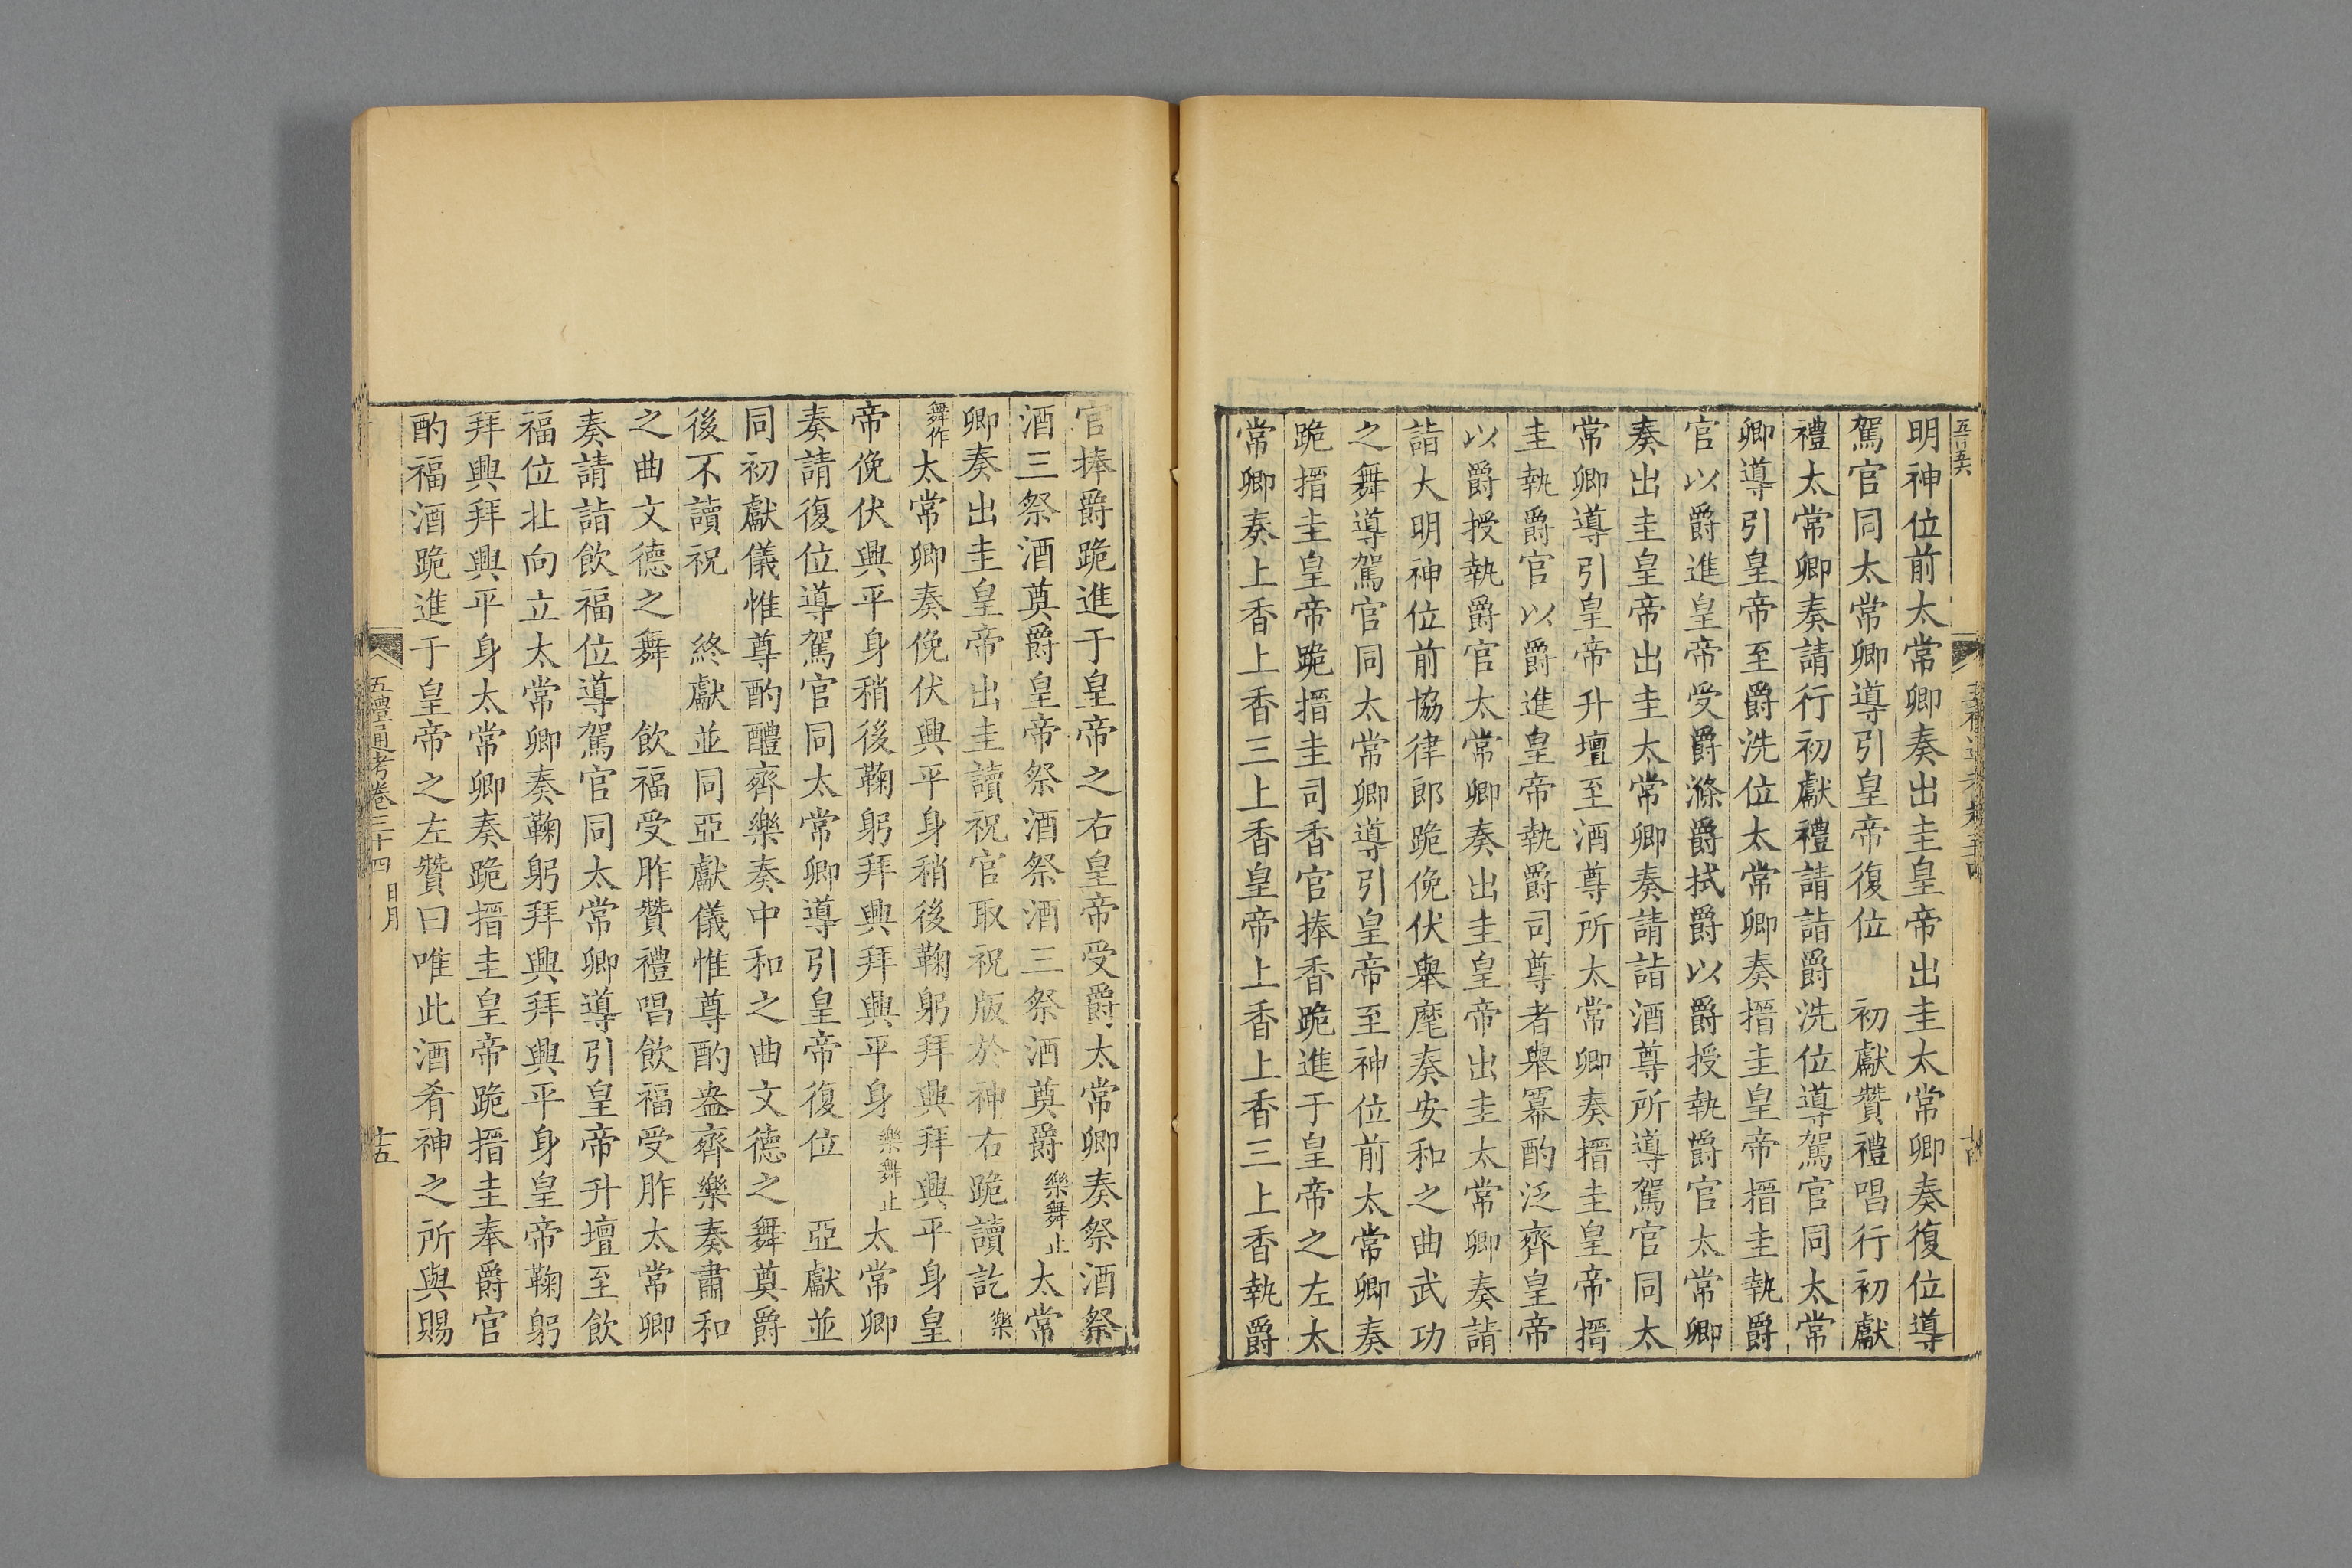 明神位前太常卿奏出圭皇帝出圭太常卿奏復位導
駕官同太常卿導引皇帝復位　初獻贊禮唱行初獻
禮太常卿奏請行初獻禮請詣爵洗位導駕官同太常
卿導引皇帝至爵洗位太常卿奏搢圭皇帝搢圭執爵
官以爵進皇帝受爵滌爵拭爵以爵授執爵官太常卿
奏出圭皇帝出圭太常卿奏請詣酒尊所導駕官同太
常卿導引皇帝升壇至酒尊所太常卿奏搢圭皇帝搢
圭執爵官以爵進皇帝執爵司尊者舉冪酌泛齊皇帝
以爵授執爵官太常卿奏出圭皇帝出圭太常卿奏請
詣大明神位前協律郎跪俛伏舉麾奏安和之曲武功
之舞導駕官同太常卿導引皇帝至神位前太常卿奏
跪搢圭皇帝跪搢圭司香官捧香跪進于皇帝之左太
常卿奏上香上香三上香皇帝上香上香三上香執爵
官捧爵跪進于皇帝之右皇帝受爵太常卿奏祭酒祭
酒三祭酒奠爵皇帝祭酒祭酒三祭酒奠爵樂舞止太常
卿奏出圭皇帝出圭讀祝官取祝版於神右跪讀訖樂
舞作太常卿奏俛伏興平身稍後鞠躬拜興拜興平身皇
帝俛伏興平身稍後鞠躬拜興拜興平身樂舞止太常卿
奏請復位導駕官同太常卿導引皇帝復位　亞獻並
同初獻儀惟尊酌醴齊樂奏中和之曲文德之舞奠爵
後不讀祝　終獻並同亞獻儀惟尊酌盎齊樂奏肅和
之曲文德之舞　飲福受胙贊禮唱飲福受胙太常卿
奏請詣飲福位導駕官同太常卿導引皇帝升壇至飲
福位北向立太常卿奏鞠躬拜興拜興平身皇帝鞠躬
拜興拜興平身太常卿奏跪搢圭皇帝跪搢圭奉爵官
酌福酒跪進于皇帝之左贊曰唯此酒肴神之所與賜
五禮通考卷三十四　日月　十五